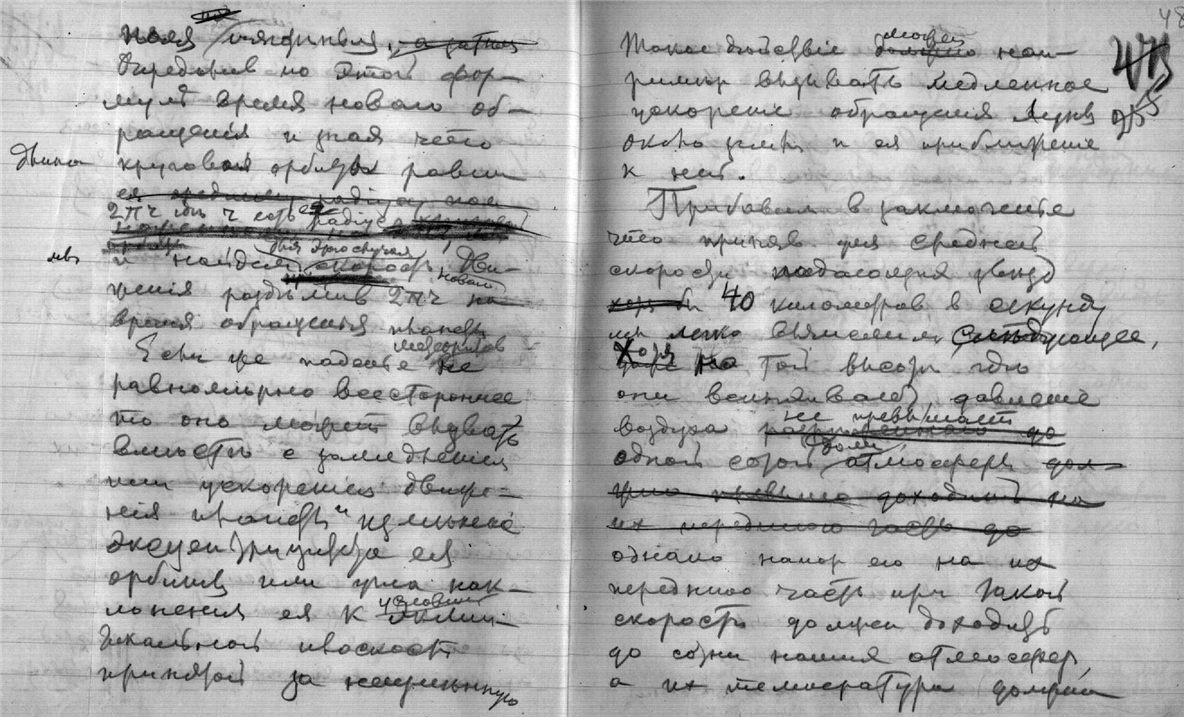 поля тяготенья, а затем
опредѣлив по этой фор-
мулѣ время новаго об-
ращенія и зная что
длина круговой орбиты равна
2πч гдѣ ч есть ея радіус
мы и найдем для этого случая скорость дви-
женія раздѣлив 2πч на новое
время обращенія планеты
Если же паденье метеоритов не
равномѣрно всестороннее
то оно может вызвать
вмѣстѣ с замедленіем
или ускореніем движе-
нія планеты и
эксцентриситета ея
орбиты или угла нак-
лоненія ея к условной
плоскости
принятой за неизмѣнную
48
Такое дѣйствіе может нап-
римѣр вызывать медленное
ускореніе обращенія Луны
около земли и ея приближеніе
к ней.
255
Прибавим в заключенье
что приняв для средней
скорости падающих звѣзд
40 километров в секунду
мы легко вычислим слѣдующее,
Хотя на той высотѣ гдѣ
они вспыхивают, давленье
воздуха не превышает
одной сотой доли атмосферы
однако напор его на их
переднюю часть при такой
скорости должен доходить
до сотни наших атмосфер,
а их температура должна